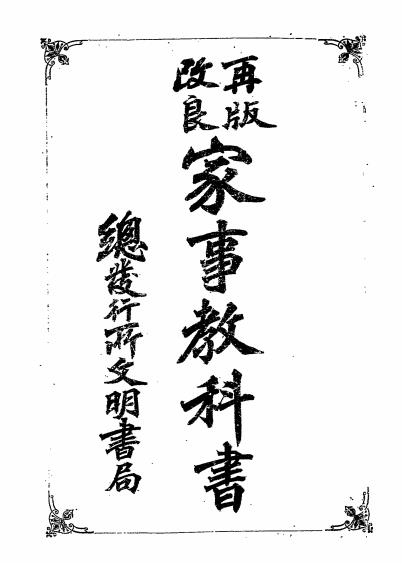 再版
改良
家事教科書
總發行所文明書局